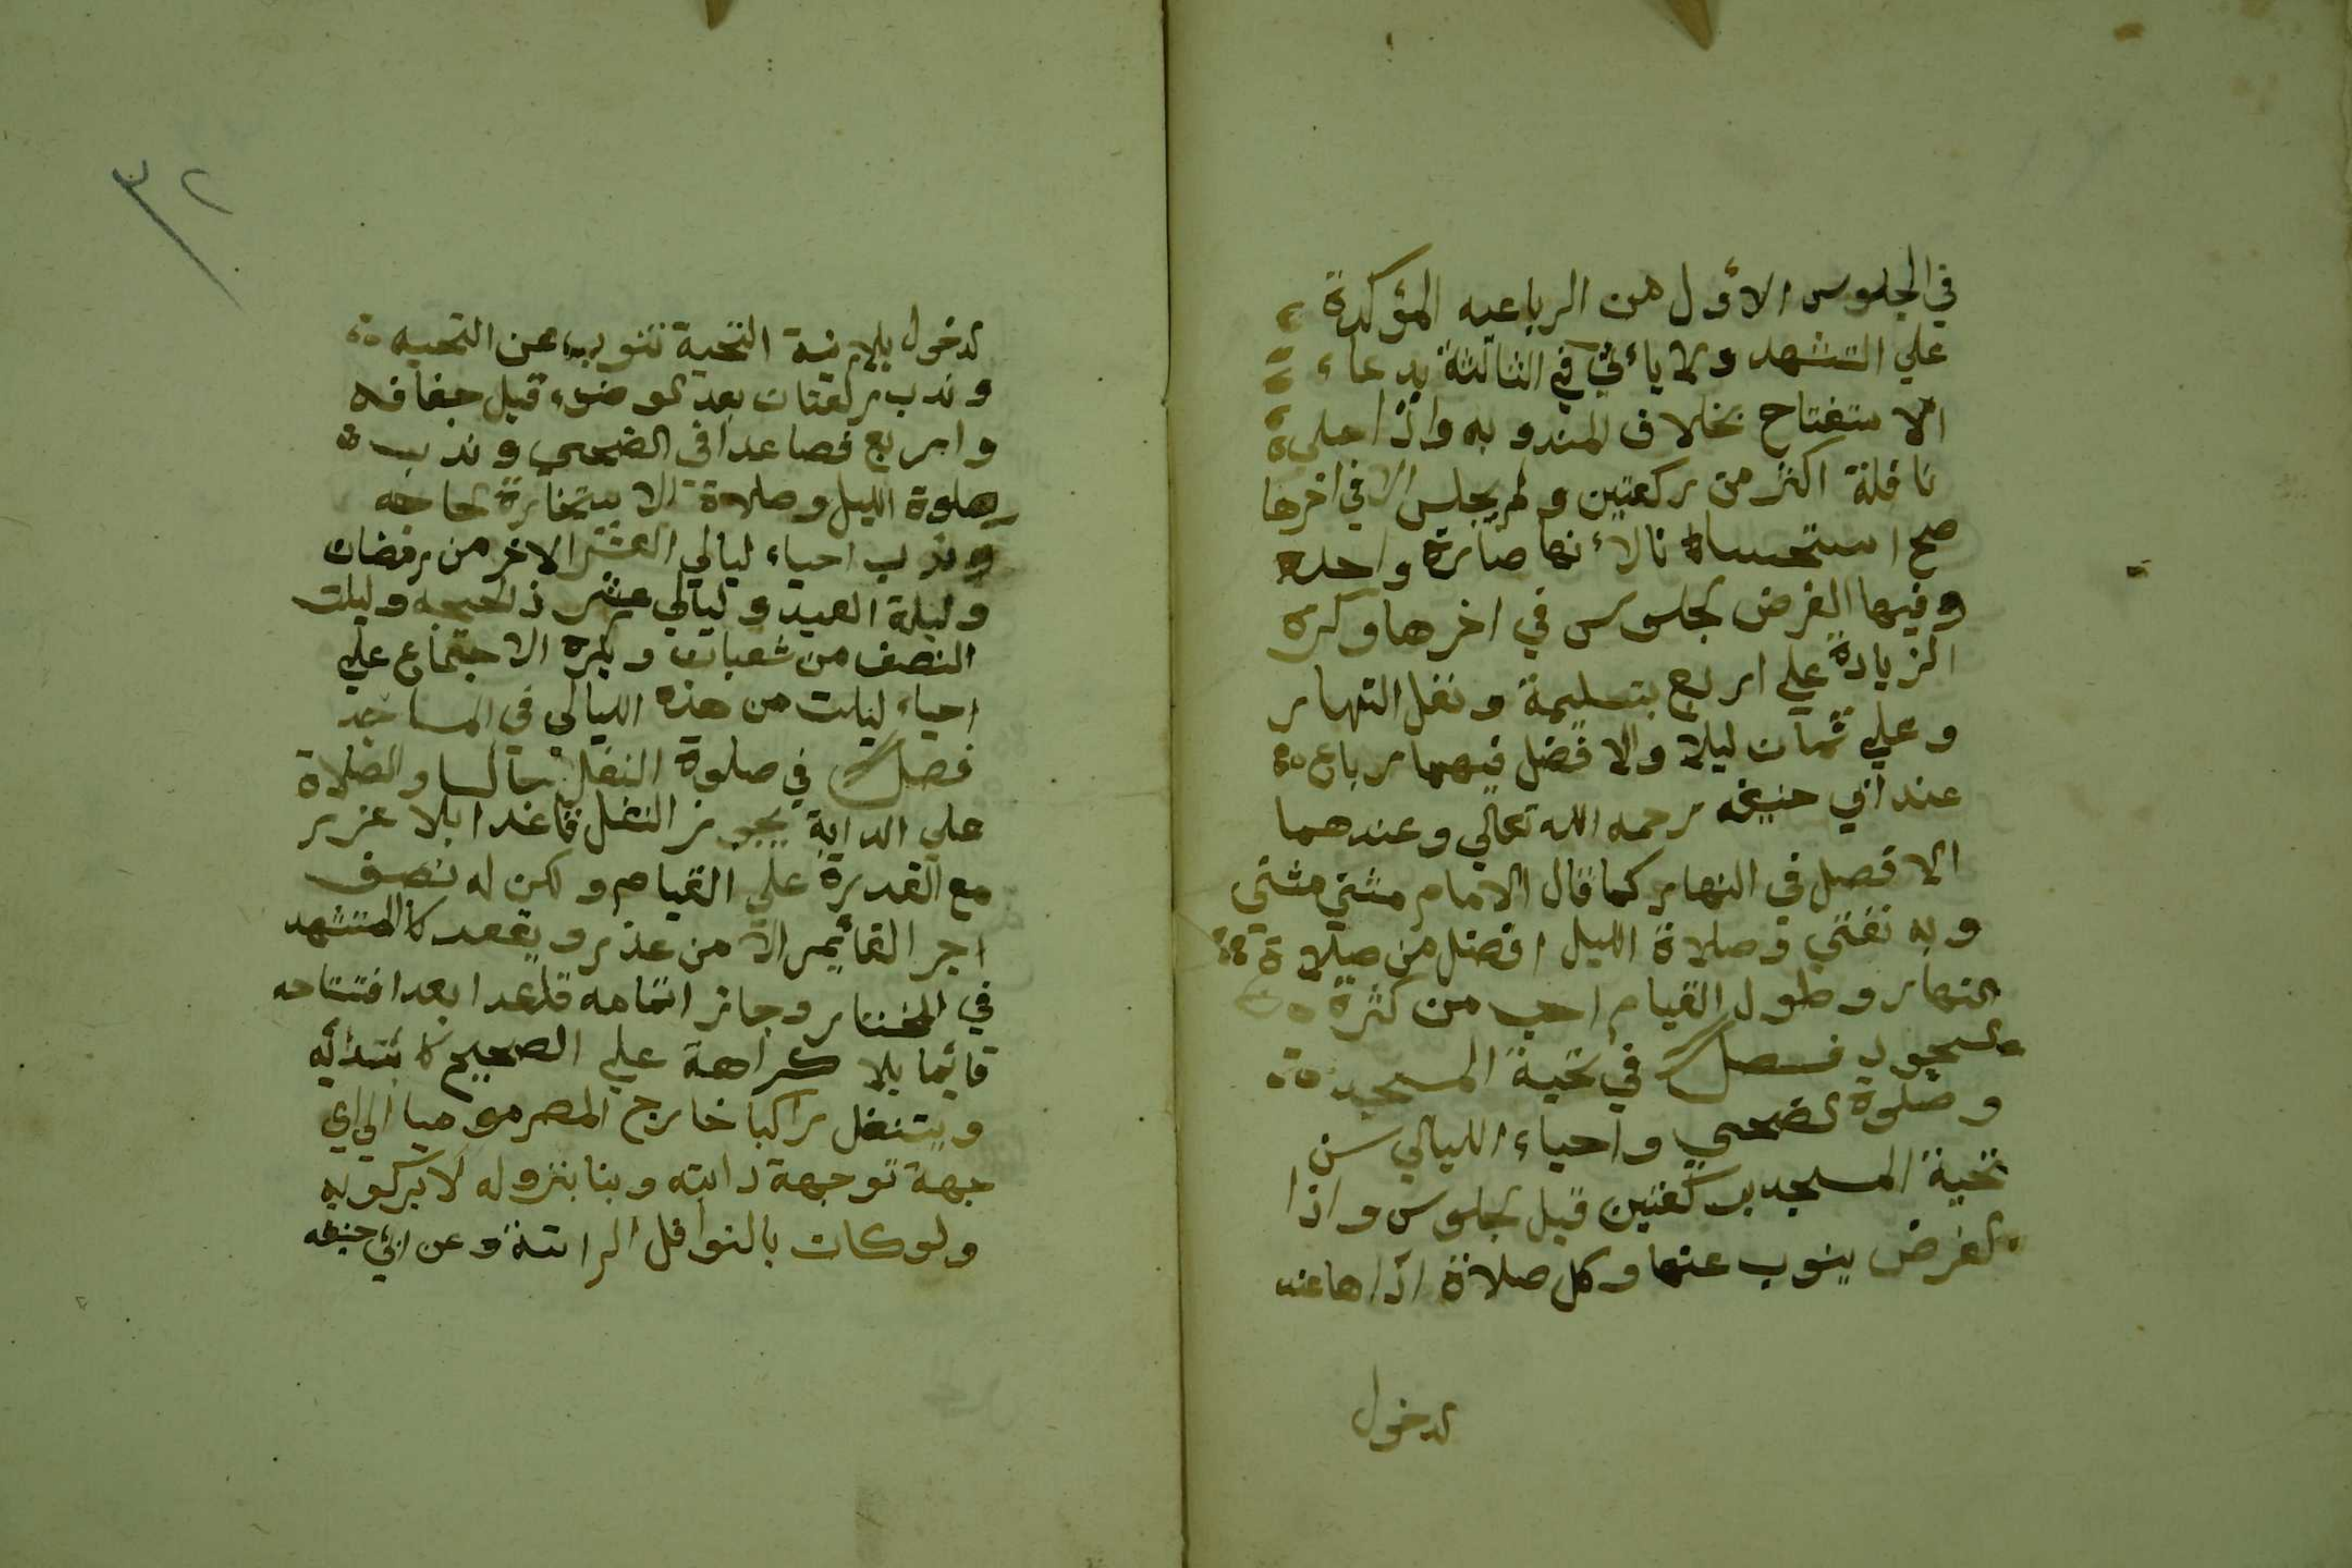 في الجلوس الأول من الرباعيه المؤكدة
علي التشهد ولا يأتي في الثالثة بدعاء
الاستفتاح بخلاف المندوبه واذا صلى
نافلة اكثر من ركعتين ولم يجلس الا في اخرها
صح استحسانا لأنها صارة واحده
وفيها الفرض الجلوس في اخرها وكره
الزيادة علي اربع بتسليمة ونفل النهار
وعلي ثمان ليلا والافضل فيهما رباع
عند ابي حنيفه رحمه الله تعالي وعندهما
الافضل في النهار كما قال الامام مثني مثني
وبه نفتي وصلاة الليل افضل من صلاة
النهار وطول القيام احب من كثرة
السجود فصل في تحية المسجد
وصلوة الضحي واحياء الليالي سن
تحية المسجد بركعتين قبل الجلوس واذا
الفرض ينوب عنها وكل صلاة اداها عند
الدخول
٣٢
الدخول بلا نية التحية تنوب عن التحيه
وندب ركعتان بعد الوضوء قبل جفافه
واربع فصاعدا في الضحي وندب
صلوة الليل وصلاة الاستخارة الحاجه
وندب احياء ليالي العشر الاخر من رمضان
وليلة العيد وليالي عشر ذالحجه وليلت
النصف من شعبان ويكره الاجتماع علي
احياء ليلت من هذه الليالي في المساجد
فصل في صلوة النفل جالسا والصلاة
علي الدابة يجوز النفل قاعدا بلا عزر
مع القدرة علي القيام ولكن له نصف
اجر القائيم الا من عذر ويقعد كالمتشهد
في المختار وجاز اتمامه قاعدا بعد افتتاحه
قائما بلا كراهة علي الصحيح كابتدائه
ويتنفل راكبا خارج المصر موميا الي اي
جهة توجهة دابته وبنا بنزوله لا بركوبه
ولوكان بالنوافل الراتبة وعن ابي حنيفه